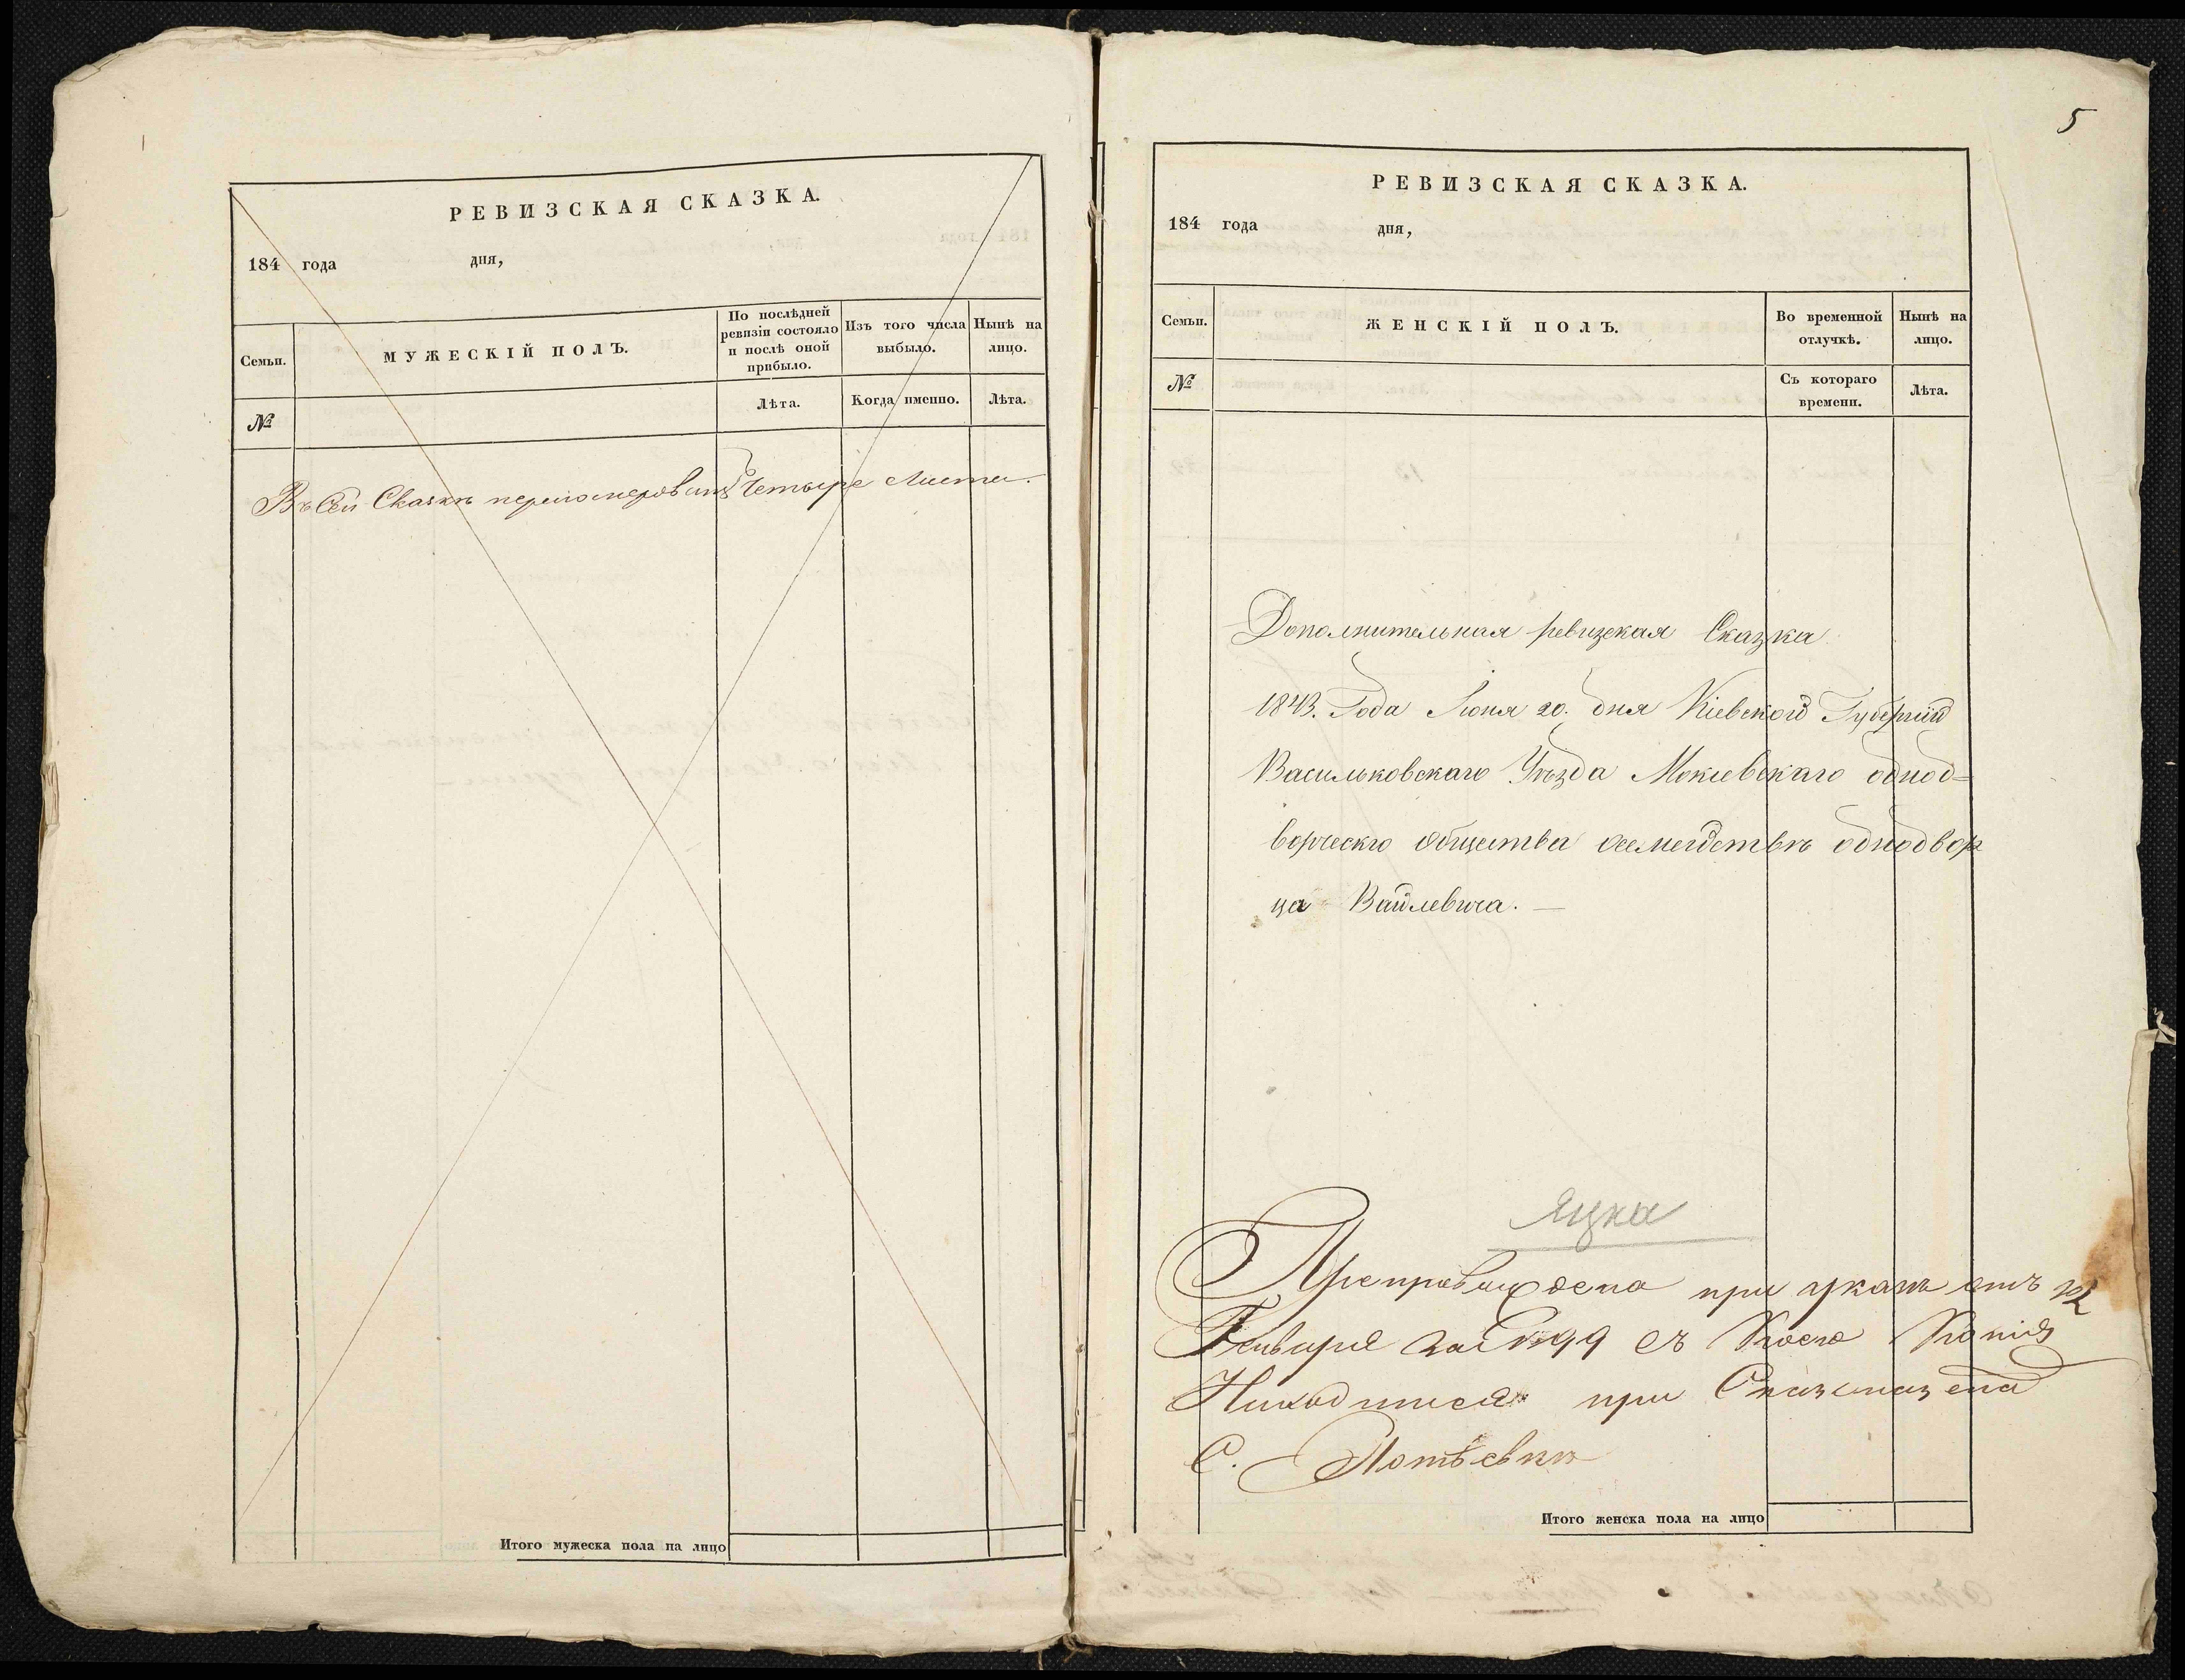 РЕВИЗСКАЯ СКАЗКА.
184 года дня,
Семьи.
МУЖЕСКІЙ ПОЛЪ.
По послѣдней ревизіи состояло и послѣ оной прибыло.
Изъ того числа выбыло.
Нынѣ на лицо.
№
Лѣта.
Когда именно.
Лѣта.
Въ Сей Сказкѣ перенумеровано Четыре Листа.
Итого мужеска пола на лицо
5
РЕВИЗСКАЯ СКАЗКА.
184 года дня,
Семьи.
ЖЕНСКІЙ ПОЛЪ.
Во временной отлучкѣ.
Нынѣ на лицо.
№
Съ котораго времени.
Лѣта.
Дополнительная ревизская Сказка
1843. Года Іюня 20. дня Кіевской Губерніи
Васильковскаго Уѣзда Мокіевскаго однод=
ворческго общества о семействѣ однодвор
ца Вайлевича. —
Яцка
при указѣ отъ
Генваря
при
С.
Итого женска пола на лицо